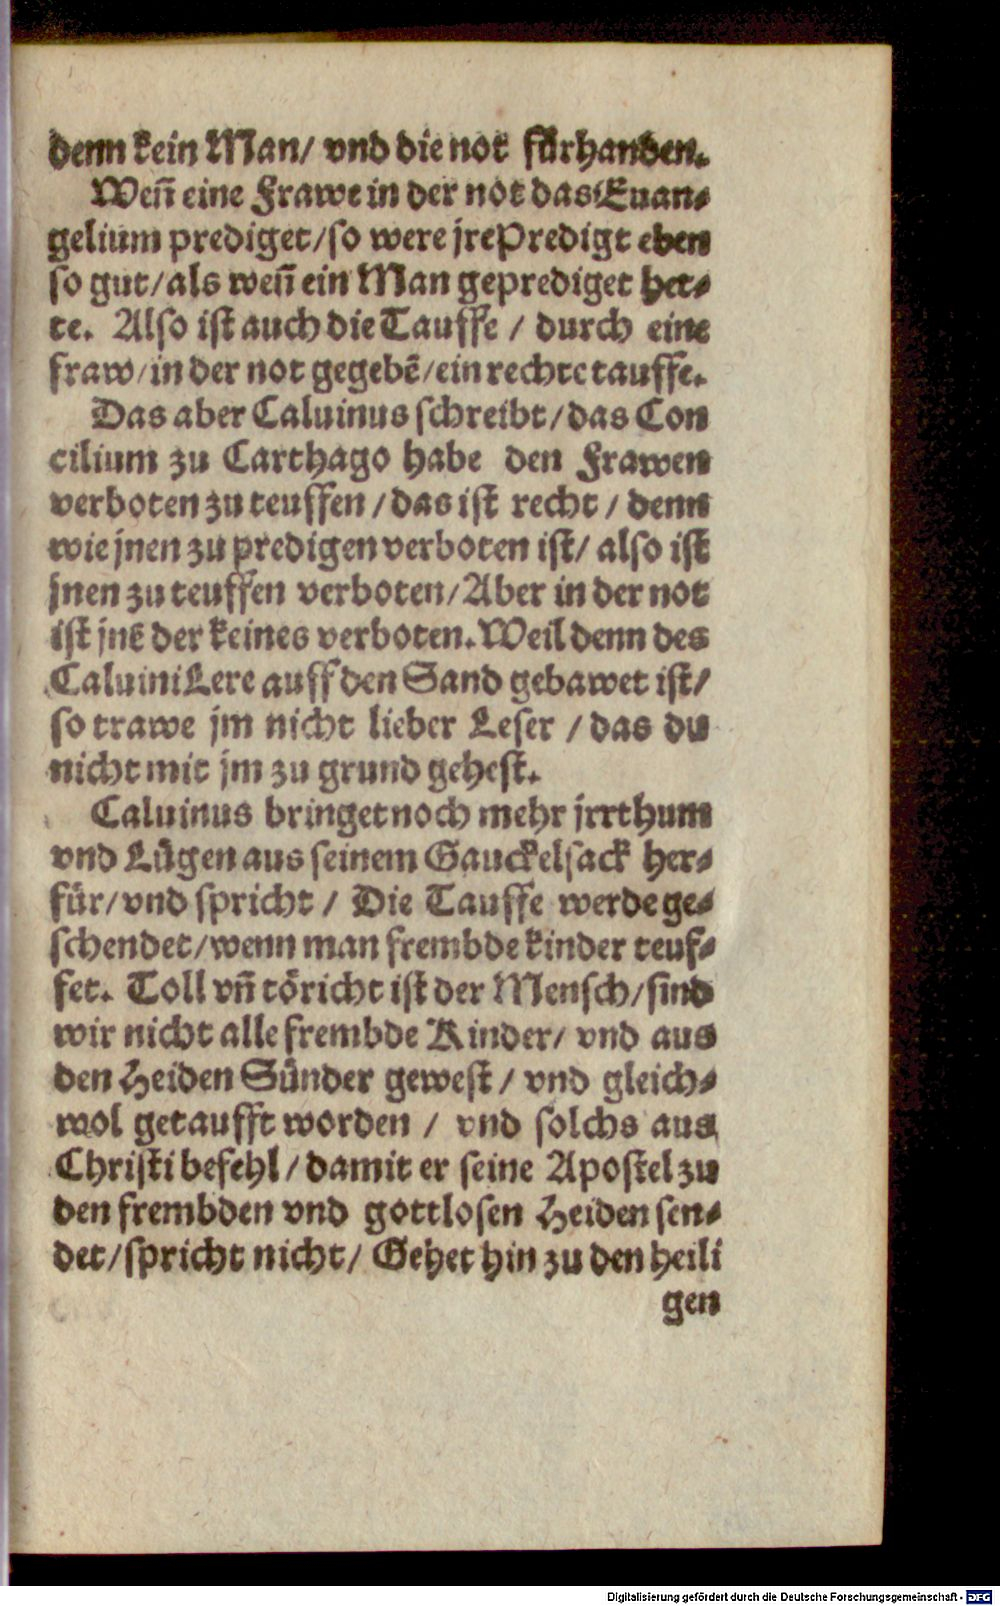 denn kein Man/ vnd die not fürhanden.
Weñ eine Frawe in der not das Euan⸗
gelium prediget/ so were jre Predigt eben
so gut/ als weñ ein Man geprediget het⸗
te. Also ist auch die Tauffe / durch eine
fraw/ in der not gegebē/ ein rechte tauffe.
Das aber Caluinus schreibt/ das Con
cilium zu Carthago habe den Frawen
verboten zu teuffen / das ist recht / denn
wie jnen zu predigen verboten ist/ also ist
jnen zu teuffen verboten/ Aber in der not
ist jnē der keines verboten. Weil denn des
Caluini Lere auff den Sand gebawet ist/
so trawe jm nicht lieber Leser / das du
nicht mit jm zu grund gehest.
Caluinus bringet noch mehr jrrthum
vnd Lügen aus seinem Gauckelsack her⸗
für/ vnd spricht / Die Tauffe werde ge⸗
schendet/ wenn man frembde kinder teuf⸗
fet. Toll vñ töricht ist der Mensch/ sind
wir nicht alle frembde Kinder/ vnd aus
den Heiden Sünder gewest / vnd gleich⸗
wol getaufft worden / vnd solchs aus
Christi befehl / damit er seine Apostel zu
den frembden vnd gottlosen Heiden sen⸗
det/ spricht nicht/ Gehet hin zu den heili
gen
Digitalisierung gefördert durch die Deutsche Forschungsgemeinschaft - DFG